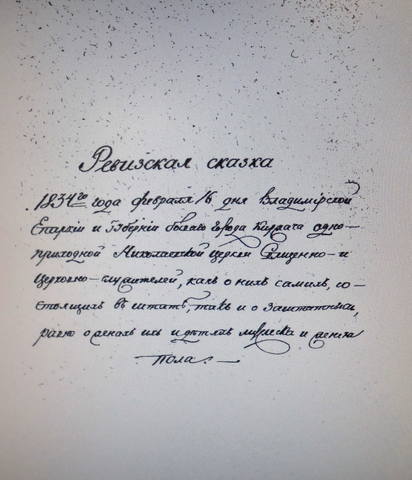 Ревизская сказка
1834го года февраля 16 дня Владимирской
Епархіи и Губерніи бывшаго города Киржача одно-
приходной Николаевской церкви Священно- и
Церковно-служителей, какъ о нихъ самихъ, со-
стоящихъ въ штатѣ, такъ и о заштатныхъ,
равно о женахъ ихъ и дѣтяхъ мужеска и женска
пола.